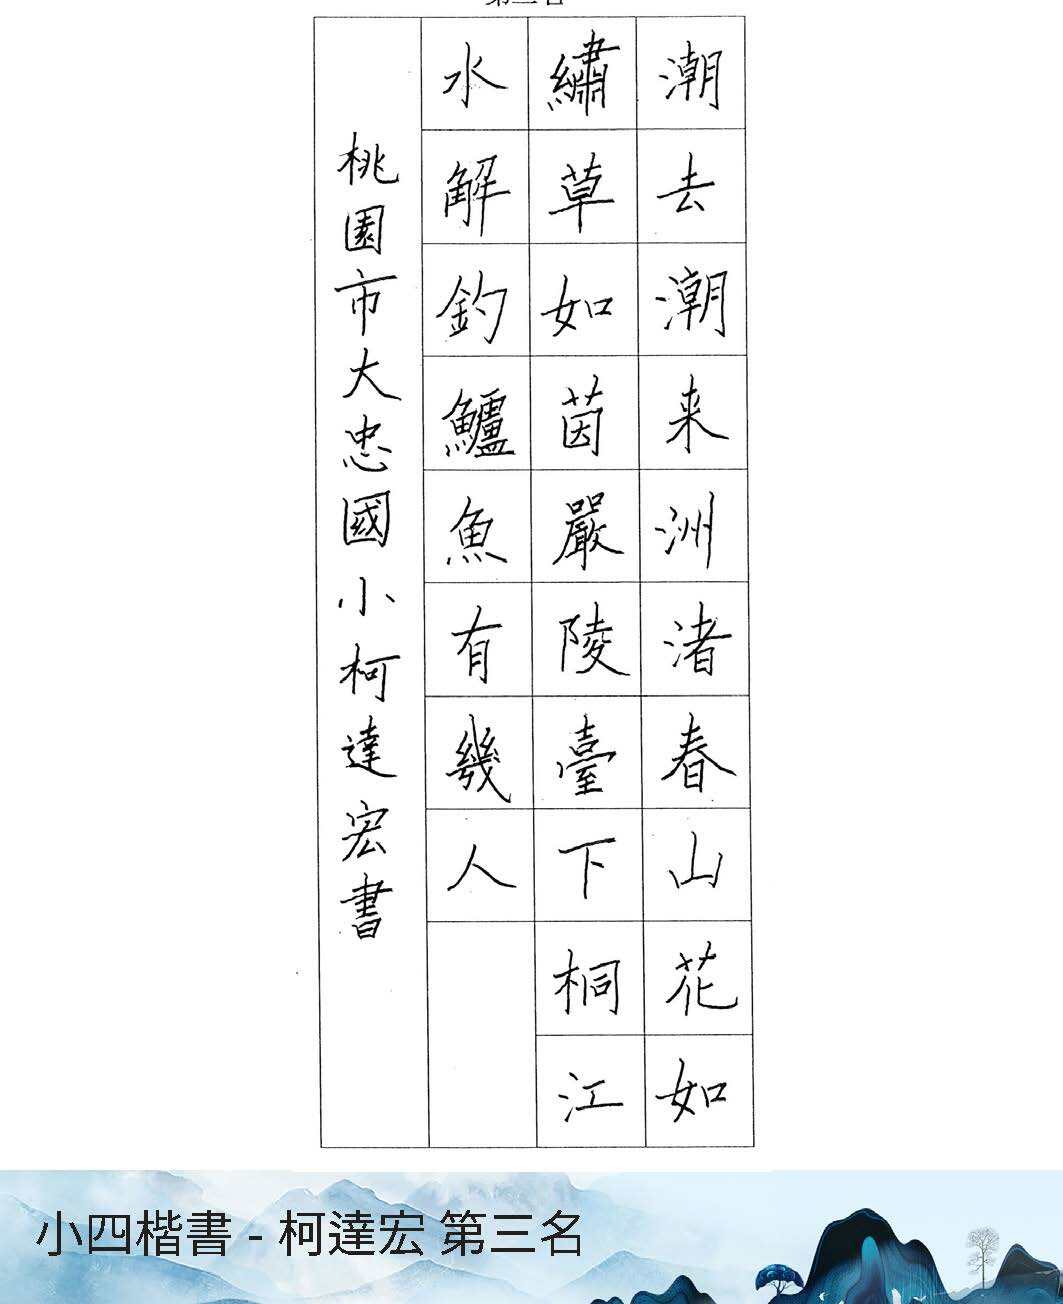 潮去潮来洲渚春山花如
繡草如茵嚴陵臺下桐江
水解釣鱸魚有幾人
桃園市大忠國小柯達宏書
小四楷書 - 柯達宏 第三名